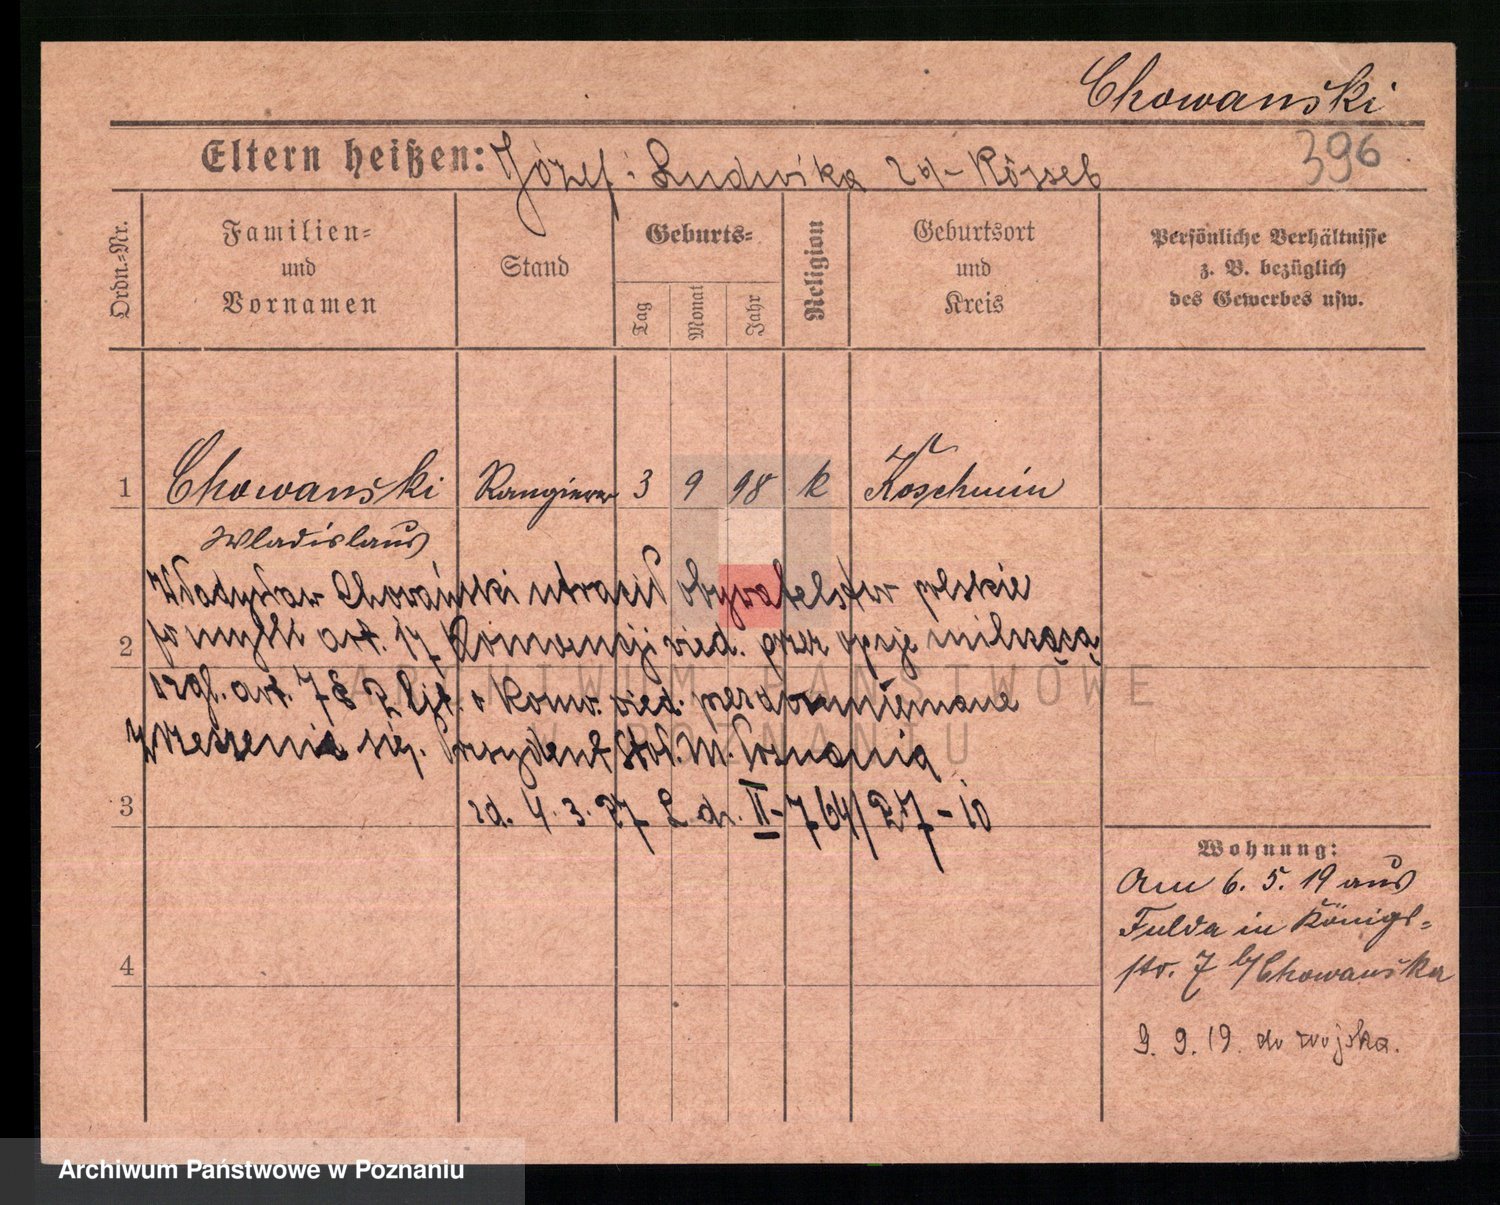 Chowanski
396
Eltern heißen: Józef i Ludwika zd- Rösseb
Ordn.-Nr.
Familien-
und
Vornamen
Stand
Geburts-
Tag
Monat
Jahr
Religion
Geburtsort
und
Kreis
Persönliche Verhältnisse
z. B. bezüglich
des Gewerbes usw.
1 Chowanski Rangierer 3 9 98 k Koschmin
Wladislaus
Władysław Chowański utracił obywatelstwo polskie
2 po myśli art. 17 Konwencji wied. przez opcję milczącą
wzgl. art. 7 § 2 Konw. wied.
zrzeczenie się. Prezydent Stoł. M. Poznania
3 zd. 4. 3. 27 L. dz. II-764/27-10
4
Wohnung:
Am 6. 5. 19 aus
Fulda in Königs-
str. 7 b/ Chowanska
9. 9. 19. do wojska.
ARCHIWUM PAŃSTWOWE
W POZNANIU
Archiwum Państwowe w Poznaniu